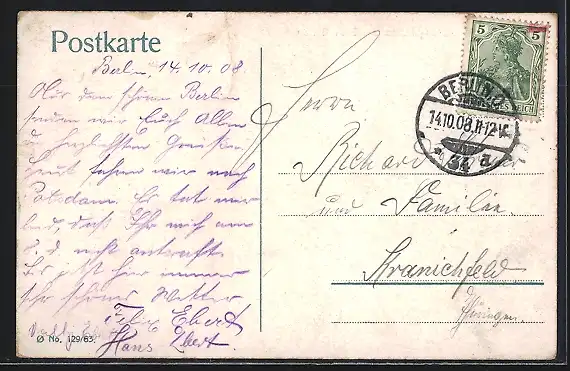 Postkarte
Berlin, 14.10.08.
Aus dem schönen Berlin
senden wir Euch Allen
d. herzlichsten Grüße.
Heut fahren wir nach
Potsdam. Es tat mir
leid, daß Ihr mich am
8. d. nicht antraft.
Es ist hier immer
sehr schönes Wetter
Felix Ebert
Hans Ebert.
Ø No. 129/63.
5 5
BERLIN O
14.10.08.11-12V.
* 34 a
Herrn
Richard
und Familie
Kranichfeld
Thüringen.